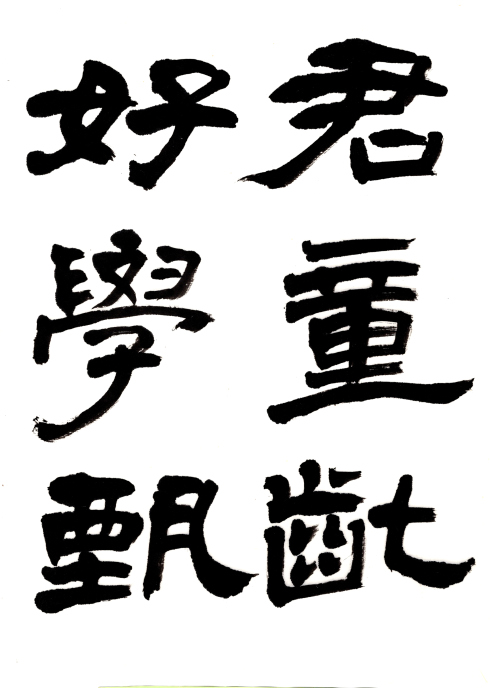 君童齔
好學甄